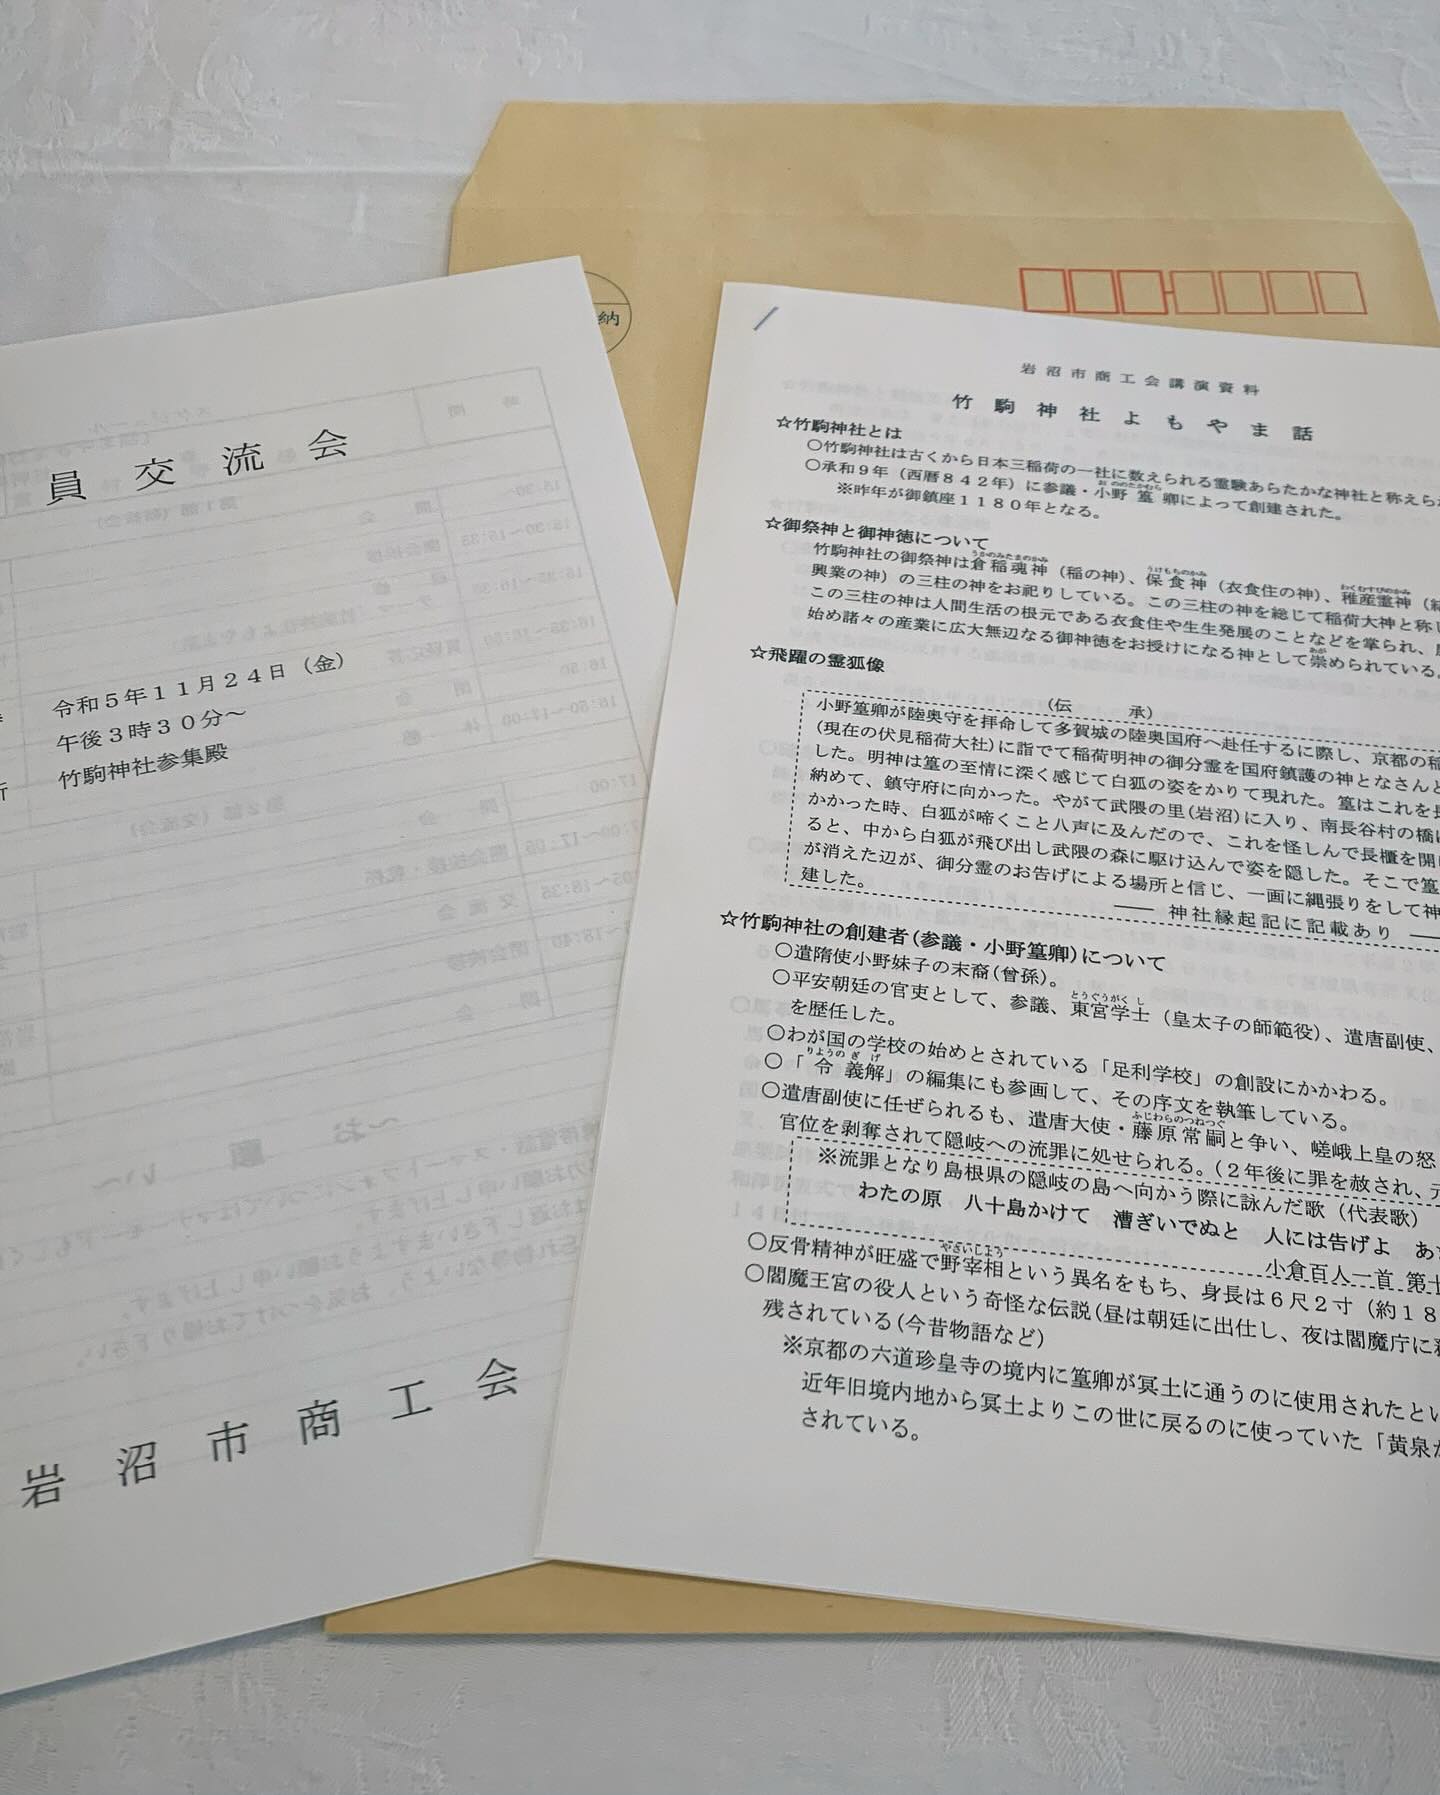 員交流会
令和５年１１月２４日（金）
午後３時３０分～
所 竹駒神社参集殿
岩沼市商工会
納
岩沼市商工会講演資料
竹駒神社よもやま話
☆竹駒神社とは
○竹駒神社は古くから日本三稲荷の一社に数えられる霊験あらたかな神社と称えら
○承和９年（西暦８４２年）に参議・小野篁卿によって創建された。
おののたかむら
※昨年が御鎮座１１８０年となる。
☆御祭神と御神徳について
うかのみたまのかみ うけもちのかみ わくむすびのかみ
竹駒神社の御祭神は倉稲魂神（稲の神）、保食神（衣食住の神）、稚産霊神（
興業の神）の三柱の神をお祀りしている。この三柱の神を総じて稲荷大神と称し
この三柱の神は人間生活の根元である衣食住や生生発展のことなどを掌られ、
あが
始め諸々の産業に広大無辺なる御神徳をお授けになる神として崇められている。
☆飛躍の霊狐像
（伝 承）
小野篁卿が陸奥守を拝命して多賀城の陸奥国府へ赴任するに際し、京都の稲
（現在の伏見稲荷大社）に詣でて稲荷明神の御分霊を国府鎮護の神となさんと
した。明神は篁の至情に深く感じて白狐の姿をかりて現れた。篁はこれを長
納めて、鎮守府に向かった。やがて武隈の里（岩沼）に入り、南長谷村の橋に
かかった時、白狐が啼くこと八声に及んだので、これを怪しんで長櫃を開け
ると、中から白狐が飛び出し武隈の森に駆け込んで姿を隠した。そこで篁
が消えた辺が、御分霊のお告げによる場所と信じ、一画に縄張りをして神
建した。
―― 神社縁起記に記載あり ――
☆竹駒神社の創建者（参議・小野篁卿）について
○遣隋使小野妹子の末裔（曾孫）。
とうぐうがくし
○平安朝廷の官吏として、参議、東宮学士（皇太子の師範役）、遣唐副使、
を歴任した。
○わが国の学校の始めとされている「足利学校」の創設にかかわる。
りょうのぎげ
○「令義解」の編集にも参画して、その序文を執筆している。
ふじわらのつねつぐ
○遣唐副使に任ぜられるも、遣唐大使・藤原常嗣と争い、嵯峨上皇の怒
官位を剥奪されて隠岐への流罪に処せられる。（２年後に罪を赦され、元
※流罪となり島根県の隠岐の島へ向かう際に詠んだ歌（代表歌）
わたの原 八十島かけて 漕ぎいでぬと 人には告げよ あ
小倉百人一首 第十
やさいしょう
○反骨精神が旺盛で野宰相という異名をもち、身長は６尺２寸（約１８
○閻魔王宮の役人という奇怪な伝説（昼は朝廷に出仕し、夜は閻魔庁に
残されている（今昔物語など）
※京都の六道珍皇寺の境内に篁卿が冥土に通うのに使用されたとい
近年旧境内地から冥土よりこの世に戻るのに使っていた「黄泉が
されている。